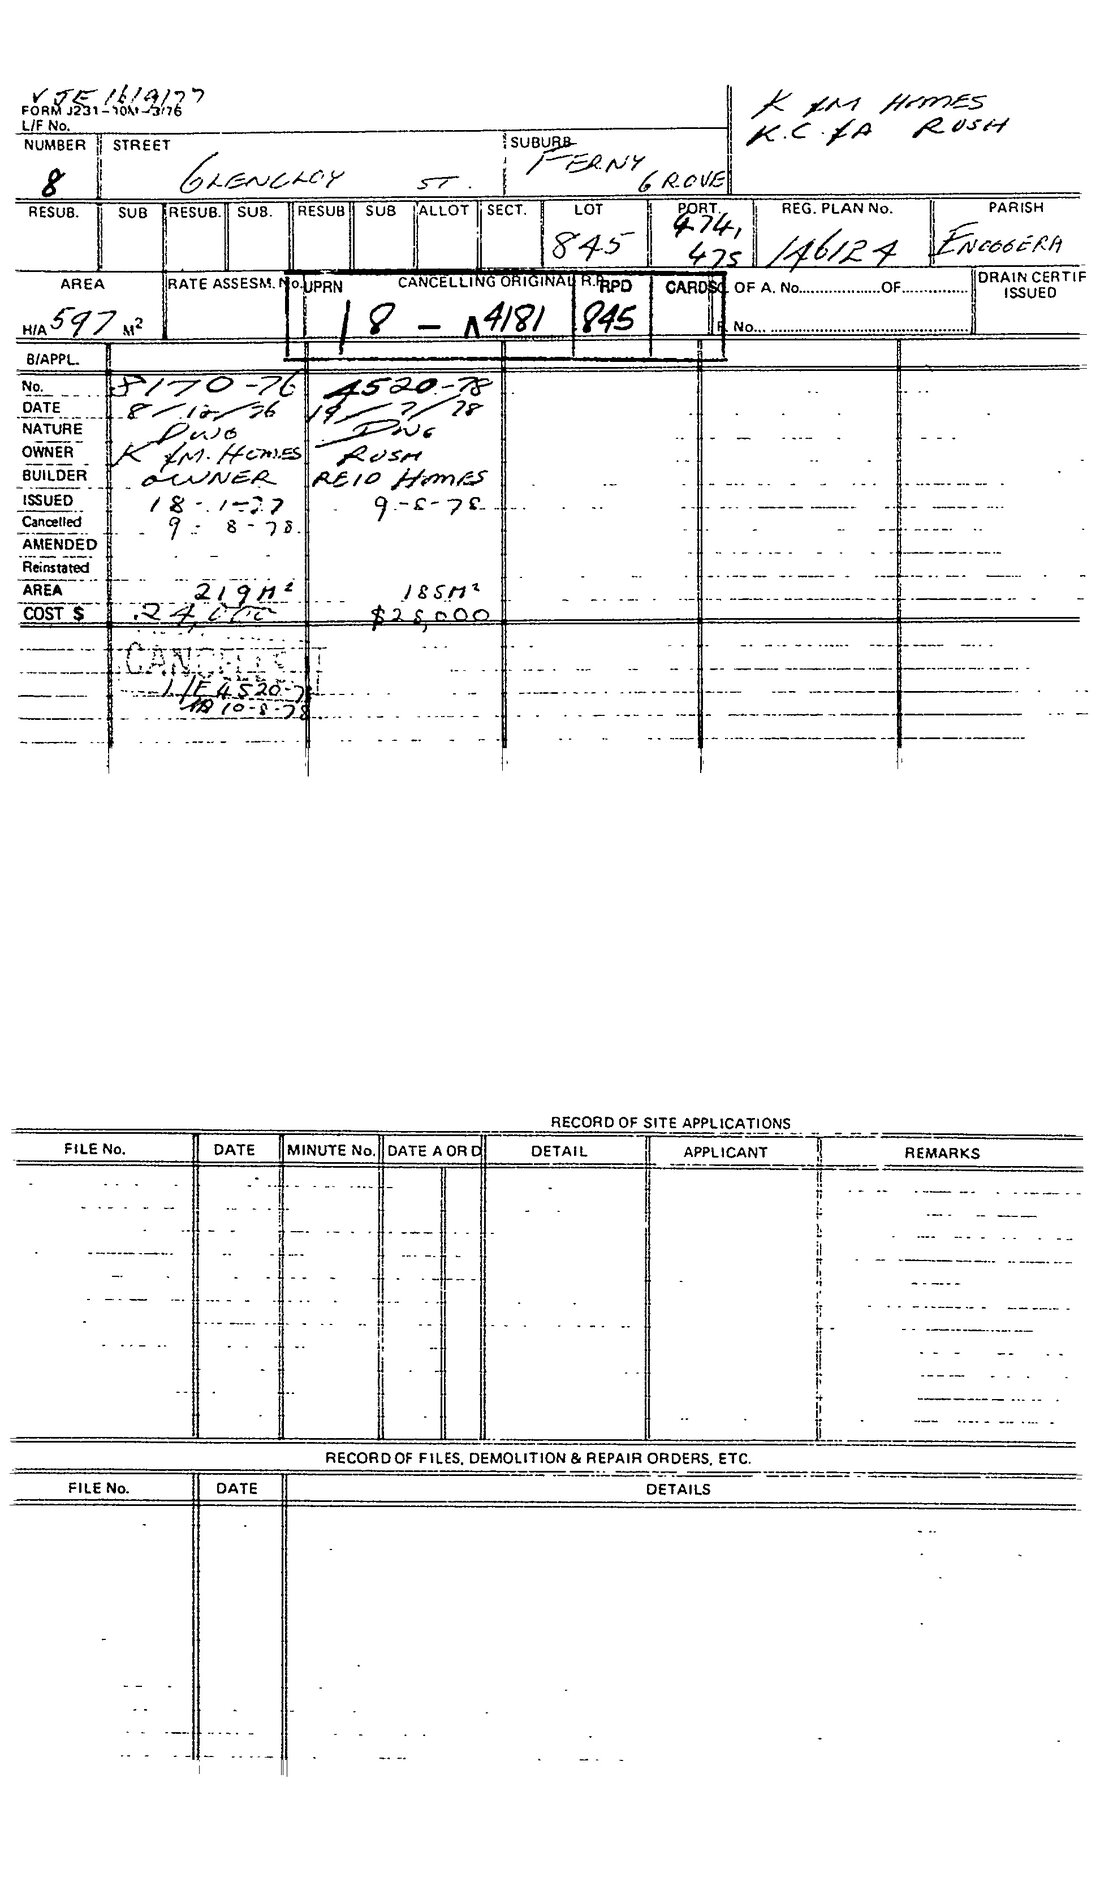 V JE 16/9/77
FORM J231-10M-3/76
L/F No.
K & M HOMES
K.C. & A RUSH
NUMBER STREET SUBURB
8 GLENCLOY ST. FERNY GROVE
RESUB. SUB RESUB. SUB. RESUB SUB ALLOT SECT. LOT PORT. REG. PLAN No. PARISH
845 474, 475 146124 ENOGGERA
AREA RATE ASSESM. No. UPRN CANCELLING ORIGINAL R.P. RPD CARDS OF A. No. OF DRAIN CERTIF
ISSUED
H/A 597 M² 8 - 4181 845 No.
B/APPL.
No. 8170-76 4520-78
DATE 8/12/76 19/7/78
NATURE DWG DWG
OWNER K & M. HOMES RUSH
BUILDER OWNER REID HOMES
ISSUED 18-1-77 9-8-78
Cancelled 9-8-78
AMENDED
Reinstated
AREA 219M² 185M²
COST $ 24,000 $28,000
CANCELLED
4520-7
10-8-78
RECORD OF SITE APPLICATIONS
FILE No. DATE MINUTE No. DATE A OR D DETAIL APPLICANT REMARKS
RECORD OF FILES, DEMOLITION & REPAIR ORDERS, ETC.
FILE No. DATE DETAILS